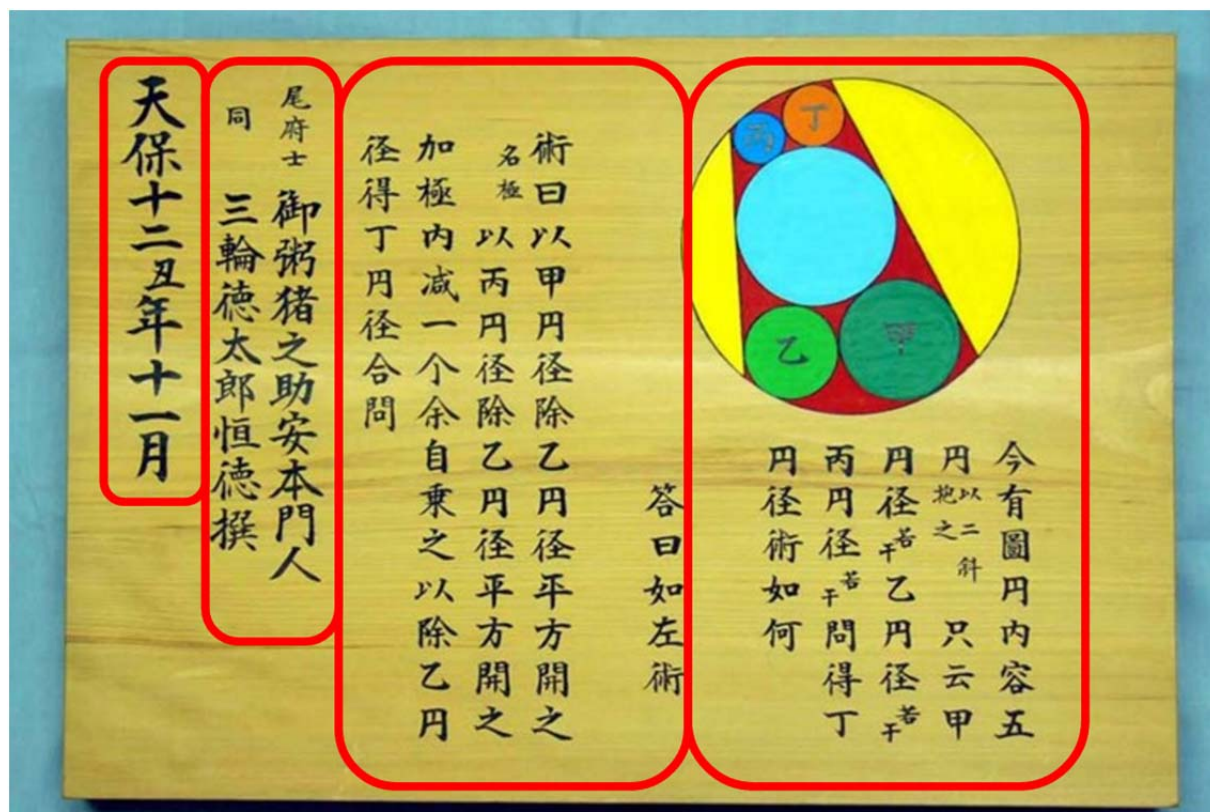 丁
丙
甲
乙
今有圖円内容五
円以二斜抱之只云甲
円径若干乙円径若干
丙円径若干問得丁
円径術如何
答曰如左術
術曰以甲円径除乙円径平方開之
名極以丙円径除乙円径平方開之
加極内减一个余自乗之以除乙円
径得丁円径合問
尾府士 御粥猪之助安本門人
同 三輪徳太郎恒徳撰
天保十二丑年十一月